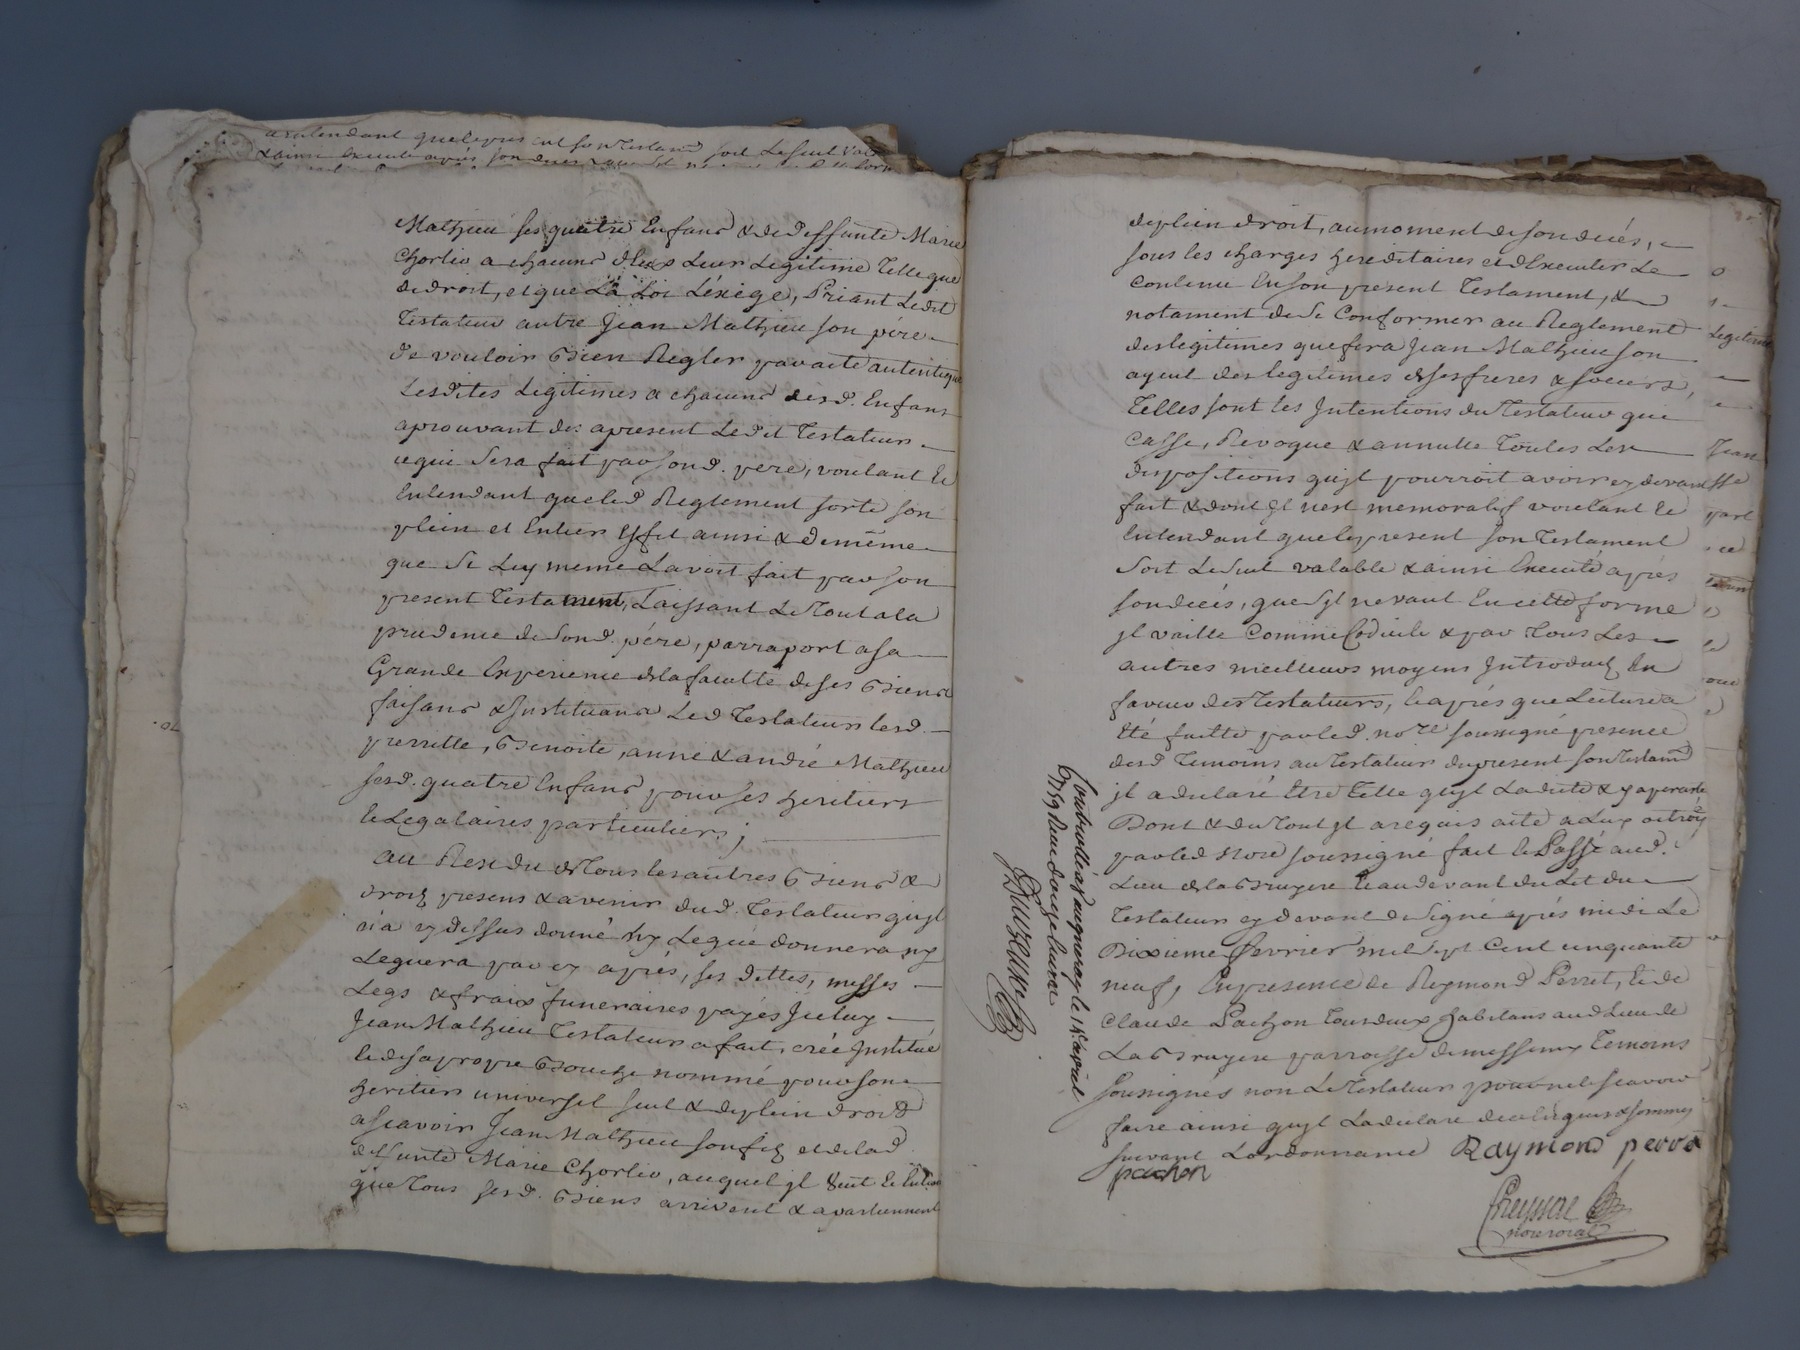 entendant que le present son Testament soit Le seul val
& ainsi Execute après son deces & que
Mathieu ses quatre Enfans & de deffunte Marie
Chorlio a chacuns d'Eux Leur Legitime Telle que
de droit, et que La Loi L'éxige, Priant Ledit
Testateur autre Jean Mathieu son pére
de vouloir Bien Regler par acte autentique
Lesdites Legitimes a chacuns desd. Enfans
aprouvant des apresent Ledit Testateur
ce qui sera fait par sond. pere, voulant Et
Entendant que led Reglement sorte son
plein et Entier Effet ainsi & de même
que si Luy meme L'avoit fait par son
present Testament, Laissant Le Tout a la
prudence de sond. pére, parraport a sa
Grande Experience & la faculté de ses Biens
faisans & Instituans Led Testateur lesd.
pierrette, Benoite, anne & andré Mathieu
sesd. quatre Enfans pour ses heritiers
Et Legataires particuliers ;
au Residu de Tous les autres Biens &
droitz presens & avenir dud. Testateur qu'jl
n'a cy dessus donné ny Legué donnera ny
Leguera par cy après, ses dettes, messes
Legs & fraix funeraires payés Jceluy
Jean Mathieu Testateur a fait, créé Jnstitué
Et de sa propre Bouche nommé pour son
heritier universel seul & de plein droit
a sçavoir Jean Mathieu son filz et de lad.
deffunte Marie Chorlio, auquel jl veut Et Entend
que Tous sesd. Biens arrivent & apartiennent
de plein droit, au moment de son decés,
sous les charges hereditaires et d'Executer Le
Contenu En son present Testament, &
notament de se Conformer au Reglement
des legitimes que fera Jean Mathieu son
ayeul des legitimes de ses freres & soeurs,
Telles sont les Jntentions du Testateur qui
Casse, Revoque & annulle Toutes Les
dispositions qu'jl pourroit avoir cy devant
fait & dont jl n'est memoratif voulant Et
Entendant que le present son Testament
soit Le seul valable & ainsi Executé après
son decés, que s'jl ne vaut En cette forme
jl vaille Comme Codicile & par Tous Les
autres meilleurs moyens Jntroduitz En
faveur des Testateurs, Et aprés que Lecture a
Eté faitte par led. nore soussigné presence
desd Temoins au Testateur du present son Testamt
jl a declaré Etre Telle qu'jl La dicté & y a persisté
Dont & du Tout jl a requis acte a Luy octroyé
par led nore soussigné fait Et Passé aud.
Lieu de la Bruyere Et au devant du Lit du
Testateur cy devant designé aprés midi Le
Dixieme fevrier mil sept Cent cinquante
neuf, En presence de Reymond Perret, Et de
Claude Pachon Tous deux habitans aud Lieu de
La Bruyere parroisse de messimy Temoins
soussignés non Le Testateur pour ne le sçavoir
faire ainsi qu'jl L'a declaré de ce Enquis & sommé
suivant L'ordonnance Raymond perret
pachon
Cheyssac
nore roial
Controllé a Vaugneray le 18 avril
1759 Reçu douze livres
Legitime
Jean
part
ce